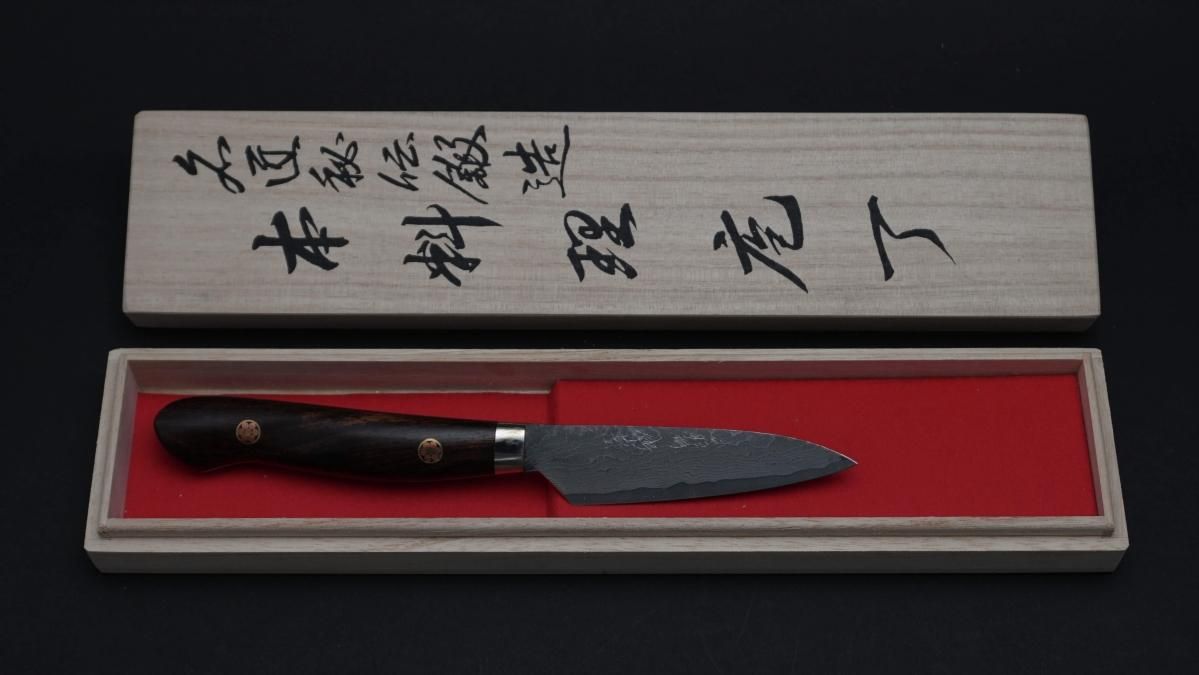 名匠秘伝鍛造
本料理庖丁